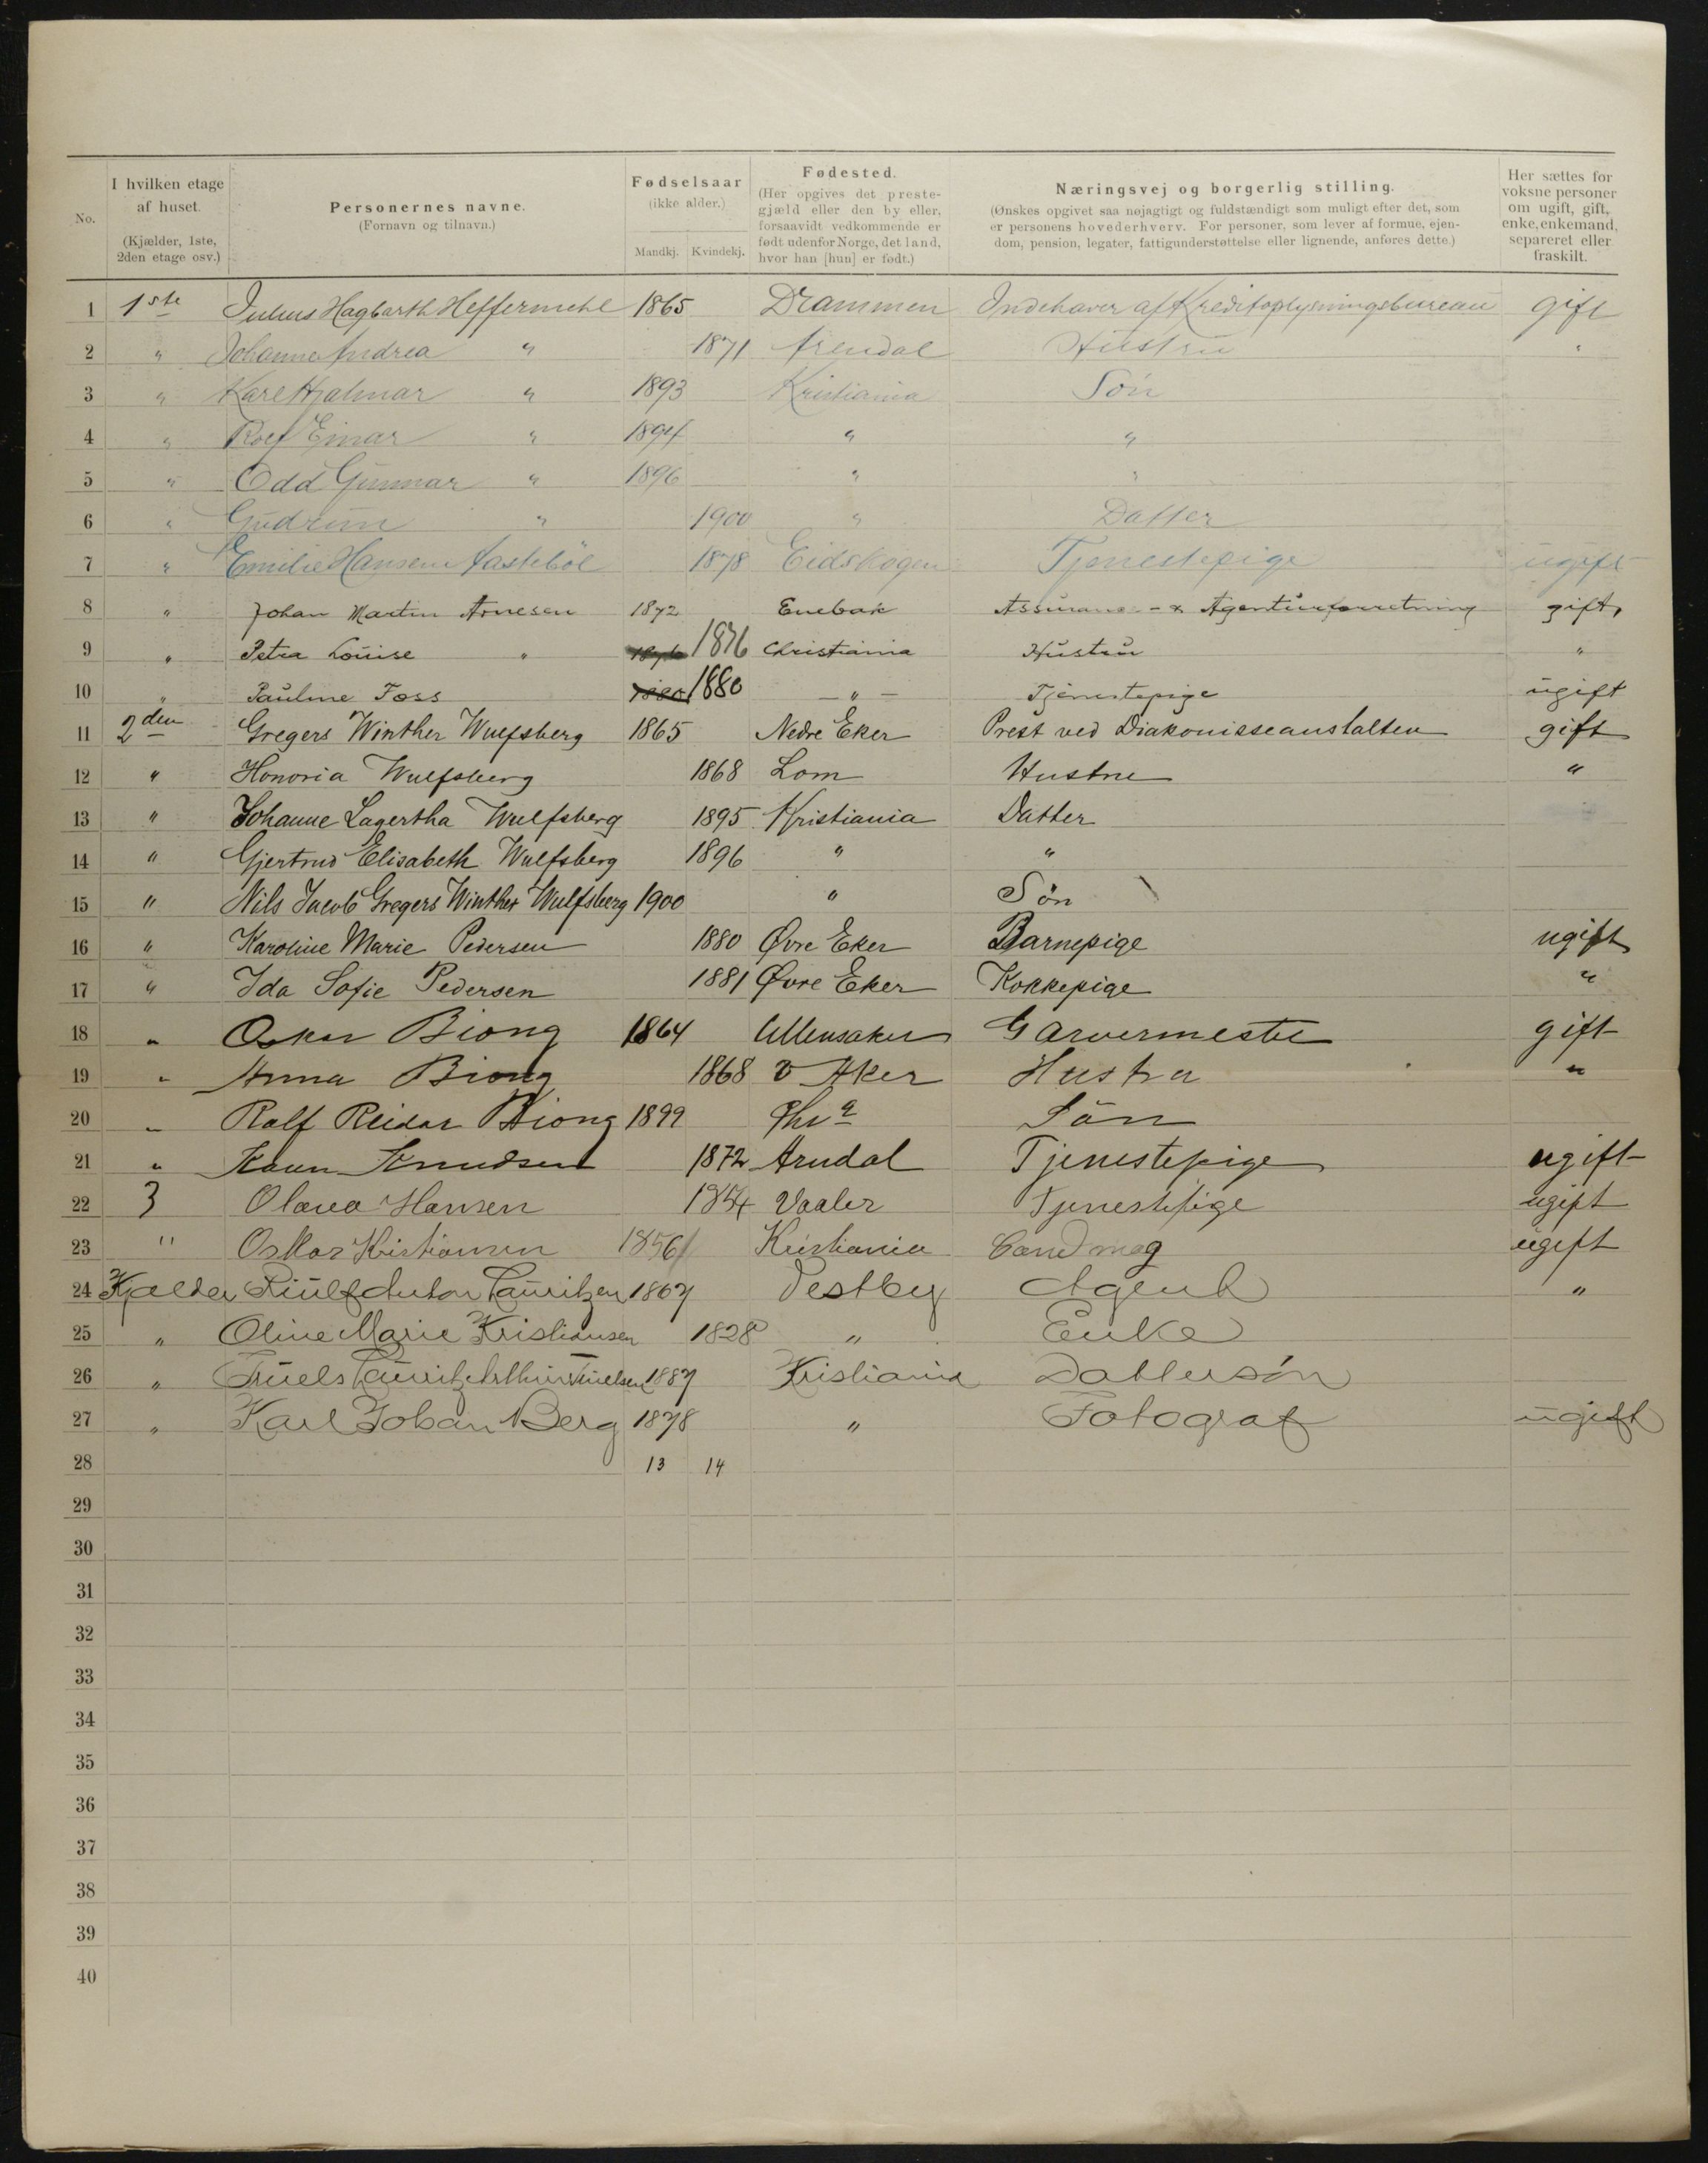 No. | I hvilken etage af huset. (Kjælder, 1ste, 2den etage osv.) | Personernes navne. (Fornavn og tilnavn.) | Fødselsaar (ikke alder.) Mandkj. Kvindekj. | Fødested. (Her opgives det prestegjæld eller den by eller, forsaavidt vedkommende er født udenfor Norge, det land, hvor han [hun] er født.) | Næringsvej og borgerlig stilling. (Ønskes opgivet saa nøjagtigt og fuldstændigt som muligt efter det, som er personens hovederhverv. For personer, som lever af formue, ejendom, pension, legater, fattigunderstøttelse eller lignende, anføres dette.) | Her sættes for voksne personer om ugift, gift, enke, enkemand, separeret eller fraskilt.
1 1ste Julius Hagbarth Heffermehl 1865 Drammen Indehaver af Kreditoplysningsbureau gift
2 " Johanne Andrea " 1871 Arendal Hustru "
3 " Karl Hjalmar " 1893 Kristiania Søn
4 " Rolf Einar " 1894 " "
5 " Odd Gunnar " 1896 " "
6 " Gudrun " 1900 " Datter
7 " Emilie Hansen Aastebøl 1878 Eidskogen Tjenestepige ugift
8 " Johan Martin Arnesen 1872 Enebak Assurance- & Agenturforretning gift,
9 " Petra Louise " 1876 1876 Christiania Hustru "
10 " Pauline Foss 1880 1880 - " - Tjenestepige ugift
11 2den Gregers Winther Wulfsberg 1865 Nedre Eker Prest ved Diakonisseanstalten gift
12 " Honoria Wulfsberg 1868 Lom Hustru "
13 " Johanne Lagertha Wulfsberg 1895 Kristiania Datter
14 " Gjertrud Elisabeth Wulfsberg 1896 " "
15 " Nils Jacob Gregers Winther Wulfsberg 1900 " Søn
16 " Karoline Marie Pedersen 1880 Øvre Eker Barnepige ugift
17 " Ida Sofie Pedersen 1881 Øvre Eker Kokkepige "
18 " Oskar Biong 1864 Ullensaker Garvermester gift
19 " Anna Biong 1868 V Aker Hustru "
20 " Rolf Reidar Biong 1899 Chra Sön
21 " Karen Knudsen 1872 Arendal Tjenestepige ugift
22 3 Olava Hansen 1854 Vaaler Tjenestepige ugift
23 " Oskar Kristiansen 1856 Kristiania Cand mag ugift
24 Kjælder Anton Lauritzen 1867 Vestby Agent "
25 " Oline Marie Kristiansen 1828 " Enke
26 " Truels Lauritz Arthur Truelsen 1887 Kristiania Dattersøn
27 " Karl Johan Berg 1878 " Fotograf ugift
28 13 14
29
30
31
32
33
34
35
36
37
38
39
40